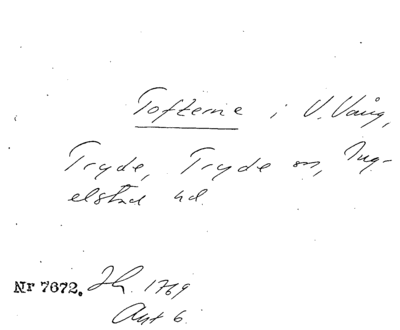 Tofterne i V. Vång,
Tryde, Tryde sn, Ing-
elstad hd.
Nr 7672. Sk. 1769
Akt 6.